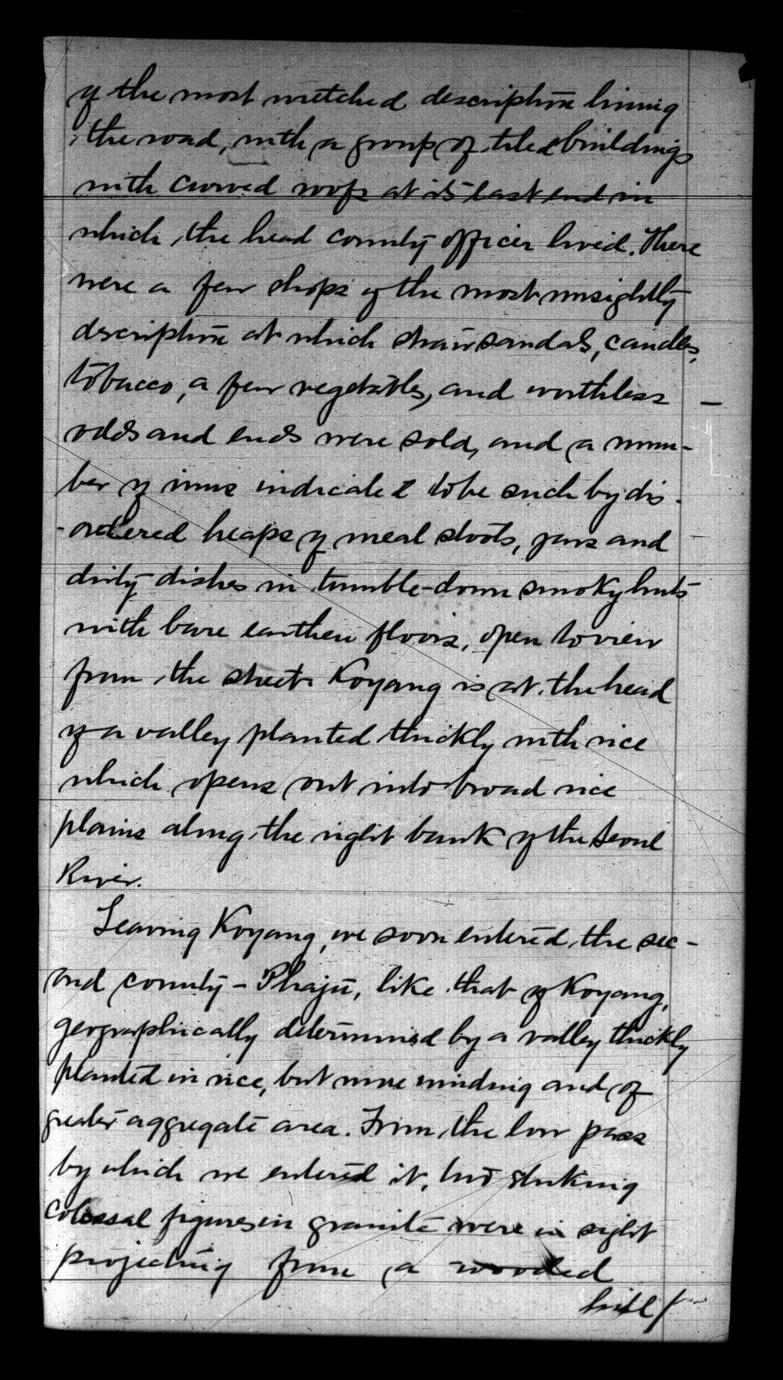 of the most wretched description lining
the road, with a group of tiled buildings
with curved roofs at its last end in
which the head county officer lived. There
were a few shops of the most unsightly
description at which straw sandals, candles,
tobacco, a few vegetables, and worthless
odds and ends were sold, and a num-
ber of inns indicated to be such by dis-
-ordered heaps of meal stools, jars and
dirty dishes in tumble-down smoky huts
with bare earthen floors, open to view
from the street. Koyang is at the head
of a valley planted thickly with rice
which opens out into broad rice
plains along the right bank of the Seoul
River.
Leaving Koyang, we soon entered the sec-
ond county - Phaju, like that of Koyang,
geographically determined by a valley thickly
planted in rice, but more winding and of
greater aggregate area. From the low pass
by which we entered it, two striking
colossal figures in granite were in sight
projecting from a wooded
hill/